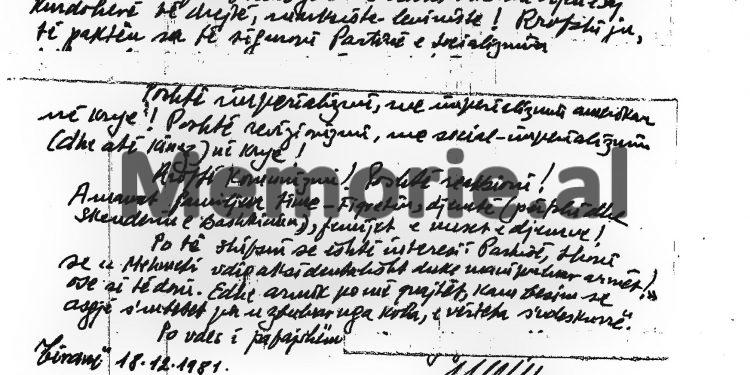 kurdoherë të drejtë, marksiste-leniniste! Rroftë ju,
të paktën sa të siguroni Partinë e socializmin
Poshtë imperializmi, me imperializmin amerikan
në krye! Poshtë revizionizmi, me social-imperializmin
(dhe atë kinez) në krye!
Rroftë Komunizmi! Poshtë reaksioni!
Amanet familjen time – Fiqretin, djemtë (përfshi dhe
Skënderin e Bashkimin), fëmijët e nuset e djemve!
Po të shihni se është interesi i Partisë, thoni
se u Mehmeti vdiq aksidentalisht duke manipuluar armët!
ose si të doni. Edhe armik po më quajtët, kam besim se
asgjë s'mbetet pa u zbuluar nga koha, e vërteta s'vdes kurrë.
Po vdes i pafajshëm
Tiranë 18.12.1981.
Memorie.al